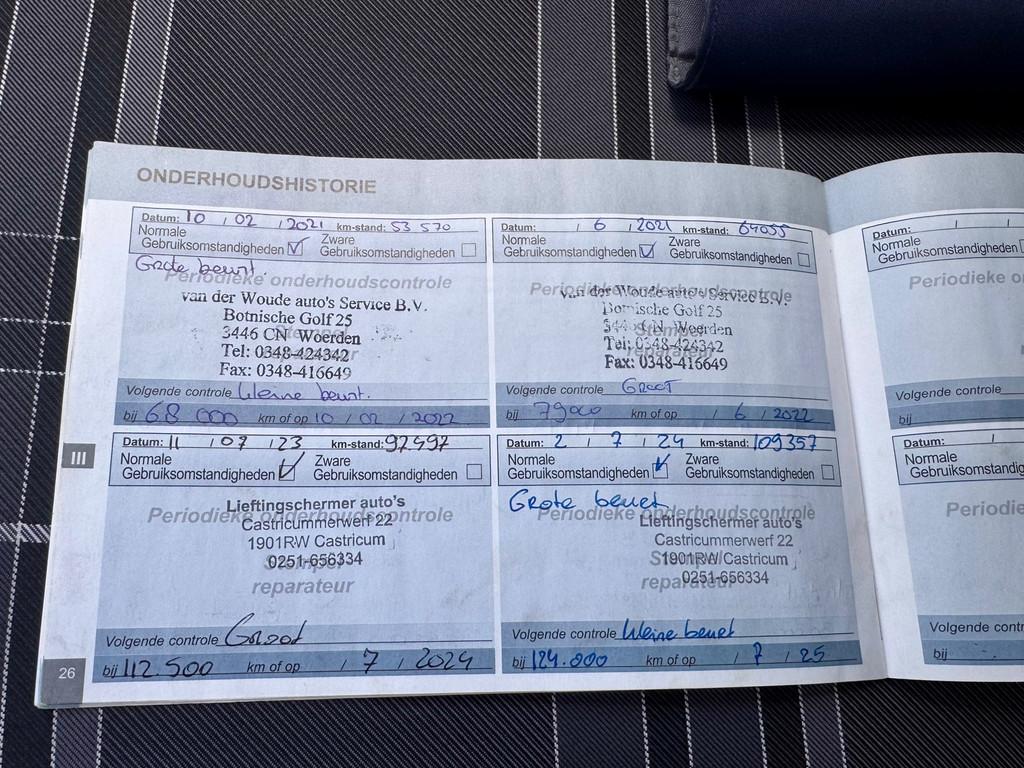 ONDERHOUDSHISTORIE
Datum: 10 / 02 / 2021 km-stand: 53 570
Normale Gebruiksomstandigheden ☑ Zware Gebruiksomstandigheden ☐
Grote beurt.
Periodieke onderhoudscontrole
van der Woude auto's Service B.V.
Botnische Golf 25
3446 CN Woerden
Tel: 0348-424342
Fax: 0348-416649
Volgende controle kleine beurt.
bij 68 000 km of op 10 / 02 / 2022
Datum: / 6 / 2021 km-stand: 64055
Normale Gebruiksomstandigheden ☑ Zware Gebruiksomstandigheden ☐
Periodieke onderhoudscontrole
van der Woude auto's Service B.V.
Botnische Golf 25
Stempel
344 CN Woerden
Tel: 0348-424342
reparateur
Fax: 0348-416649
Volgende controle GROOT
bij 79000 km of op / 6 / 2022
III
Datum: 11 / 07 / 23 km-stand: 92497
Normale Gebruiksomstandigheden ☑ Zware Gebruiksomstandigheden ☐
Lieftingschermer auto's
Periodieke onderhoudscontrole
Castricummerwerf 22
1901RW Castricum
Stempel
0251-656334
reparateur
Volgende controle Groot
bij 112.500 km of op / 7 / 2024
Datum: 2 / 7 / 24 km-stand: 109357
Normale Gebruiksomstandigheden ☑ Zware Gebruiksomstandigheden ☐
Grote beurt
Periodieke onderhoudscontrole
Lieftingschermer auto's
Castricummerwerf 22
Stempel
1901RW Castricum
reparateur
0251-656334
Volgende controle kleine beurt
bij 124.000 km of op / 7 / 25
26
Datum: / /
Normale
Gebruiksomstandigheden
Periodieke
Volgende controle
bij
Datum: /
Normale
Periodieke
bij